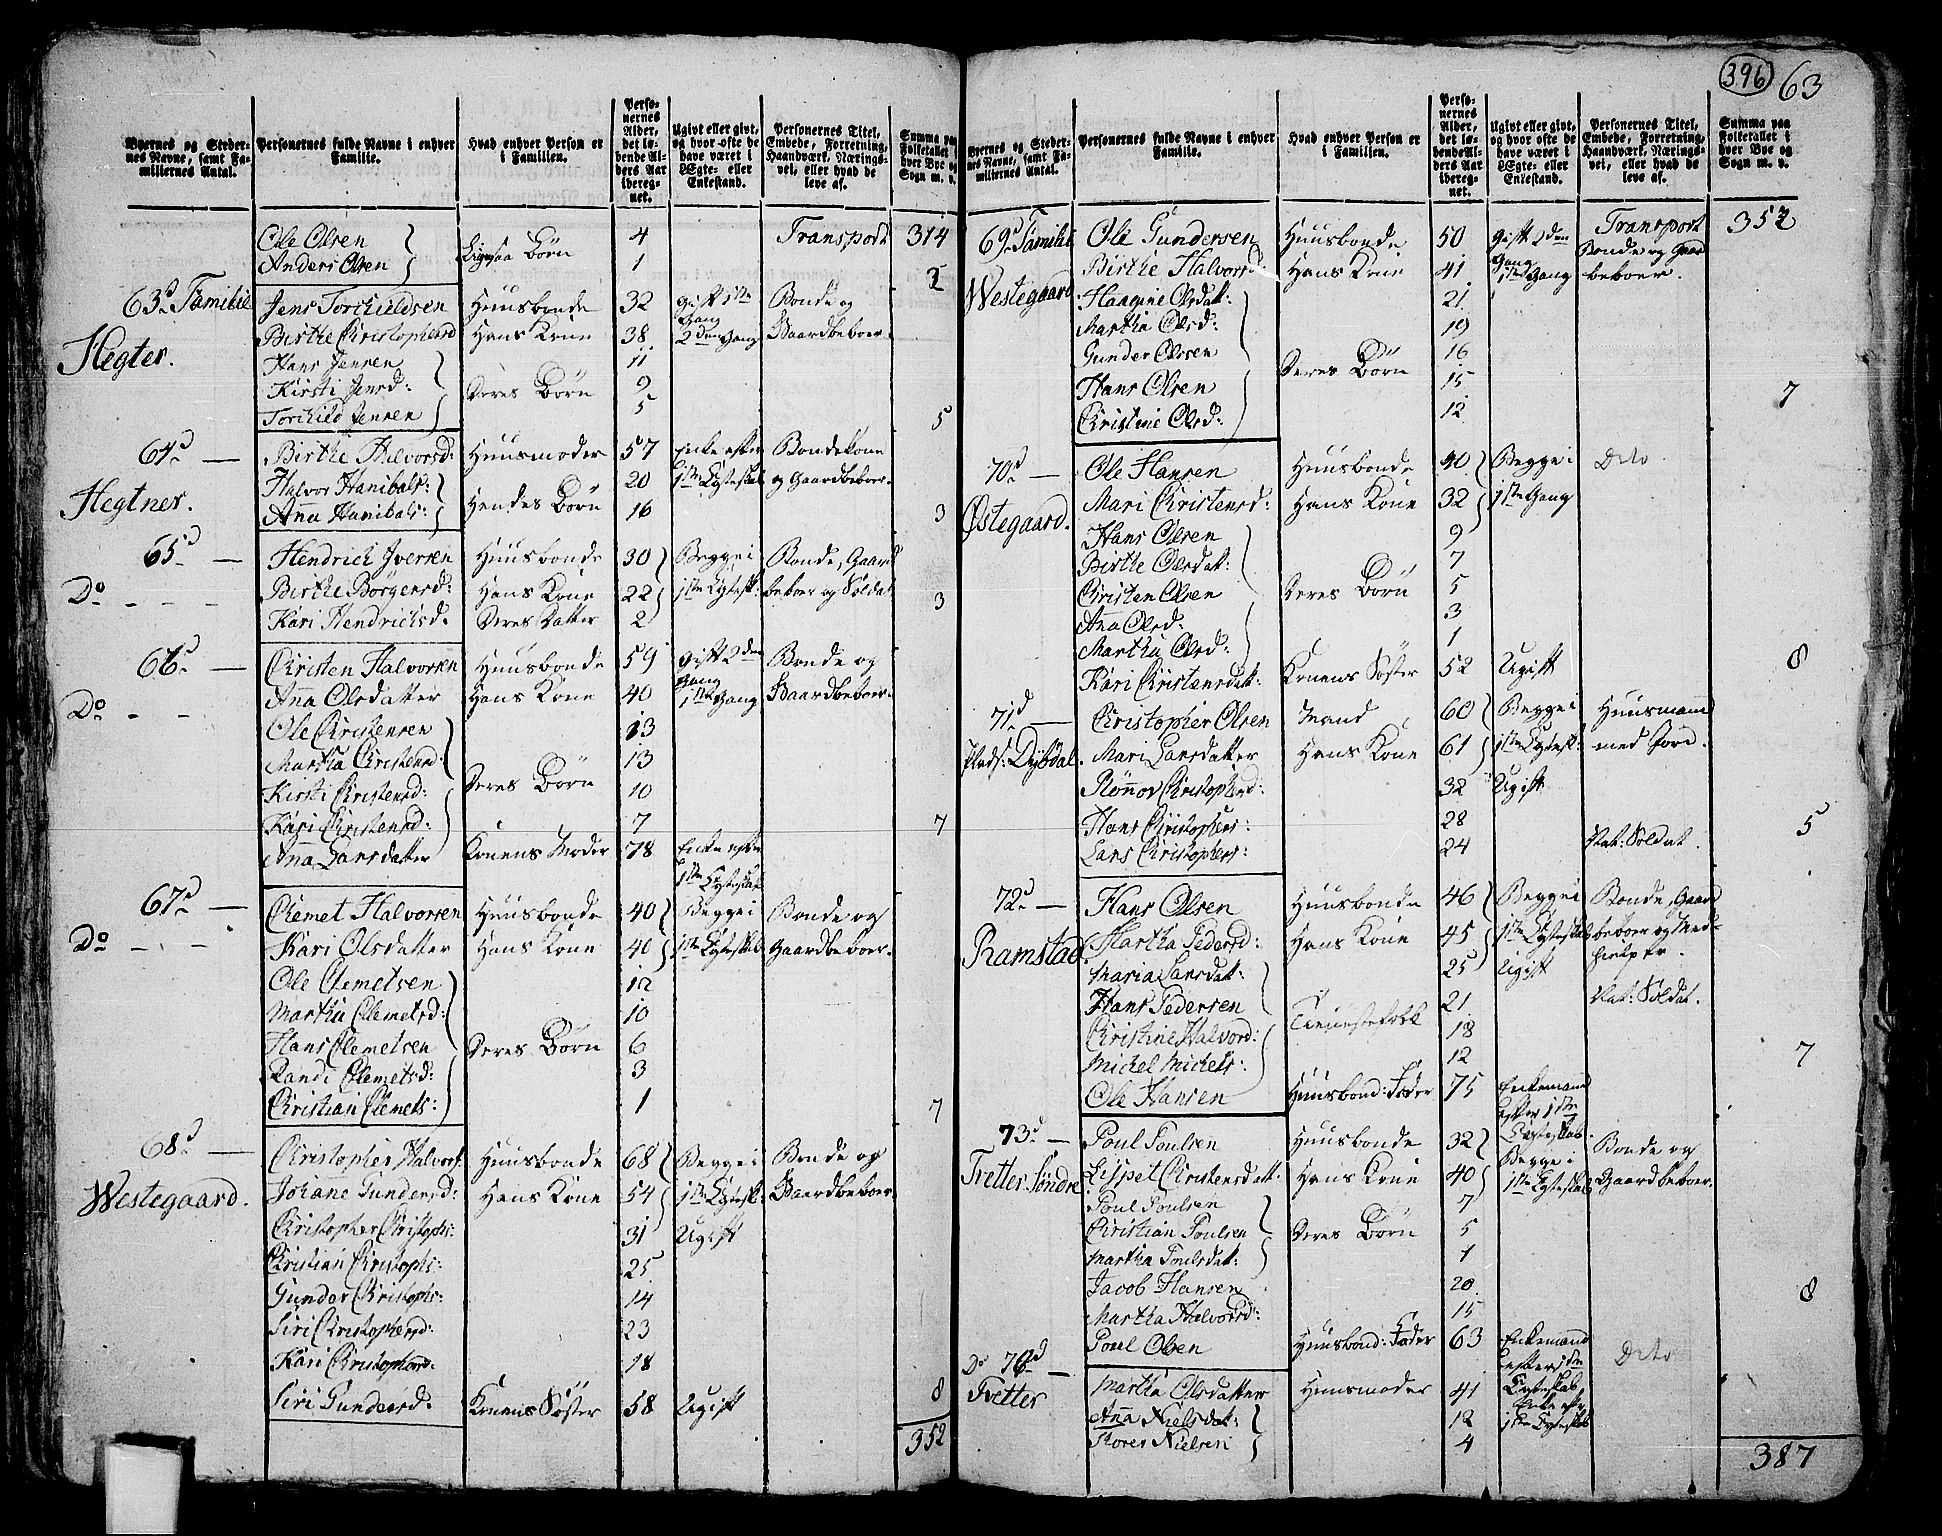 396 63
Byernes og Steder-
nes Navne, samt Fa-
miliernes Antal.
Personernes fulde Navne i enhver
Familie.
Hvad enhver Person er
i Familien.
Perso-
nernes
Alder,
det lø-
bende Al-
ders Aar
ibereg-
net.
Ugivt eller givt,
og hvor ofte de
have været i
Ægte- eller
Enkestand.
Personernes Titel,
Embede, Forretning,
Haandværk, Nærings-
vei, eller hvad de
leve af.
Summa paa
Folketallet i
hver Bye og
Sogn m. v.
Ole Olsen 4 Transport 314
Anders Olsen Ligesaa Børn 1 2
63d Familie Jens Torchildsen Huusbonde 32 Gift 1ste Gang Bonde og
Hegter. Birthe Christophersd Hans Kone 38 2den Gang Gaardbeboer.
Hans Jensen 11
Kirsti Jensd: Deres Børn 9
Torchild Jensen 5 5
64d — Birthe Halvorsd: Huusmoder 57 Enke efter Bondekone
Hegtner. Halvor Hanibals: 20 1ste Egteskab og Gaardbeboer.
Anna Hanibals: Hendes Børn 16 3
65d — Hendrich Iversen Huusbonde 30 Begge i Bonde, Gaard
Do - - - Birthe Børgersd: Hans Kone 22 1ste Egtesk: beboer og Soldat
Kari Hendrichsd. Deres Datter 2 3
66d — Christen Halvorsen Huusbonde 59 Gift 2den Gang Bonde og
Do - - Anna Olsdatter Hans Kone 40 1ste Gang Gaardbeboer.
Ole Christensen 13
Martha Christensd: 13
Kirsti Christensd: Deres Børn 10
Kari Christensd: 7 7
Anna Larsdatter Konens Moder 78 Enke efter
1ste Egteskab
67d — Clemet Halvorsen Huusbonde 40 Begge i Bonde og
Do - - - Kari Olsdatter Hans Kone 40 1ste Egteskab Gaardbeboer.
Ole Clemetsen 12
Martha Clemetsd: 10
Hans Clemetsen Deres Børn 6
Randi Clemetsd: 3
Christian Clemets: 1 7
68d — Christopher Halvors: Huusbonde 68 Begge i Bonde og
Westegaard. Johane Gundersd: Hans Kone 54 1ste Egtesk: Gaardbeboer.
Christopher Christophs: 31 Ugift
Christian Christophs: 25
Gunder Christophs: 14
Siri Christophersd: 23
Kari Christophersd: 18
Siri Gundersd: Konens Søster 58 Ugift 8
352
Byernes og Steder-
nes Navne, samt Fa-
miliernes Antal.
Personernes fulde Navne i enhver
Familie.
Hvad enhver Person er
i Familien.
Perso-
nernes
Alder,
det lø-
bende Al-
ders Aar
ibereg-
net.
Ugivt eller givt,
og hvor ofte de
have været i
Ægte- eller
Enkestand.
Personernes Titel,
Embede, Forretning,
Haandværk, Nærings-
vei, eller hvad de
leve af.
Summa paa
Folketallet i
hver Bye og
Sogn m. v.
69d Familie Ole Gundersen Huusbonde 50 Gift 2den Gang Transport 352
Bonde og Gaard
Westegaard Birthe Halvorsd: Hans Kone 41 1ste Gang beboer.
Haagine Olsdatt: 21
Martha Olsd: 19
Gunder Olssen 16
Hans Olsen Deres Børn 15
Christine Olsd: 12 7
70d — Ole Hansen Huusbonde 40 Begge i Dito
Østegaard. Mari Christensd: Hans Kone 32 1ste Gang
Hans Olsen 9
Birthe Olsdatt: 7
Christen Olsen Deres Børn 5
Anna Olsd: 3
Martha Olsd: 1
Kari Christensdatt: Konens Søster 52 Ugift 8
71d — Christopher Olsen Mand 60 Begge i Huusmand
Plads: Dybdal. Mari Larsdatter Hans Kone 61 1ste Egtesk: med Jord.
Rønnov Christophersd: 32 Ugift
Hans Christophers: 28 5
Lars Christophers: 24 Nat: Soldat.
72d — Hans Olsen Huusbonde 46 Begge i Bonde, Gaard
Ramstad. Martha Pedersd: Hans Kone 45 1ste Egteskab beboer og Med-
Maria Larsdat: 25 Ugift hielper.
Hans Pedersen Tienestefolk 21 Nat: Soldat.
Christine Halvorsd: 18
Michel Michels: 12 7
Ole Hansen Huusbond: Fader 75 Enkemand
Efter 1ste
Egteskab
73d — Poul Poulsen Huusbonde 32 Begge i Bonde og
Tvetter Søndre Lisspet Christensdatt. Hans Kone 40 1ste Egteskab Gaardbeboer.
Poul Poulsen 7
Christian Poulsen Deres Børn 5
Martha Poulsdatt: 1
Jacob Hansen 20 8
Martha Halvorsd: 15
Poul Olsen Huusbond: Fader 63 Enkemand
efter 1ste
Egteskab
Do 74d — Martha Olsdatter Huusmoder 41 Enke efter Dito
Tvetter Anna Nielsdat: 12 1ste Egteskab
Soren Nielsen 4
387